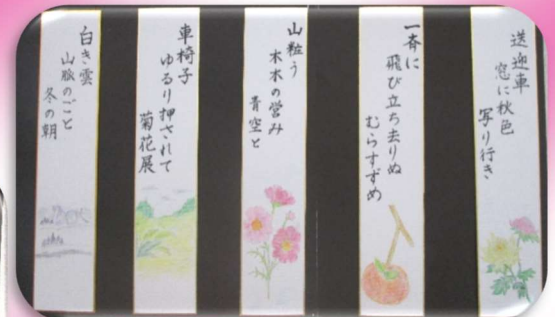 送迎車
窓に秋色
写り行き
一斉に
飛び立ち去りぬ
むらすずめ
山粧う
木木の営み
青空と
車椅子
ゆるり押されて
菊花展
白き雲
山脈のごと
冬の朝